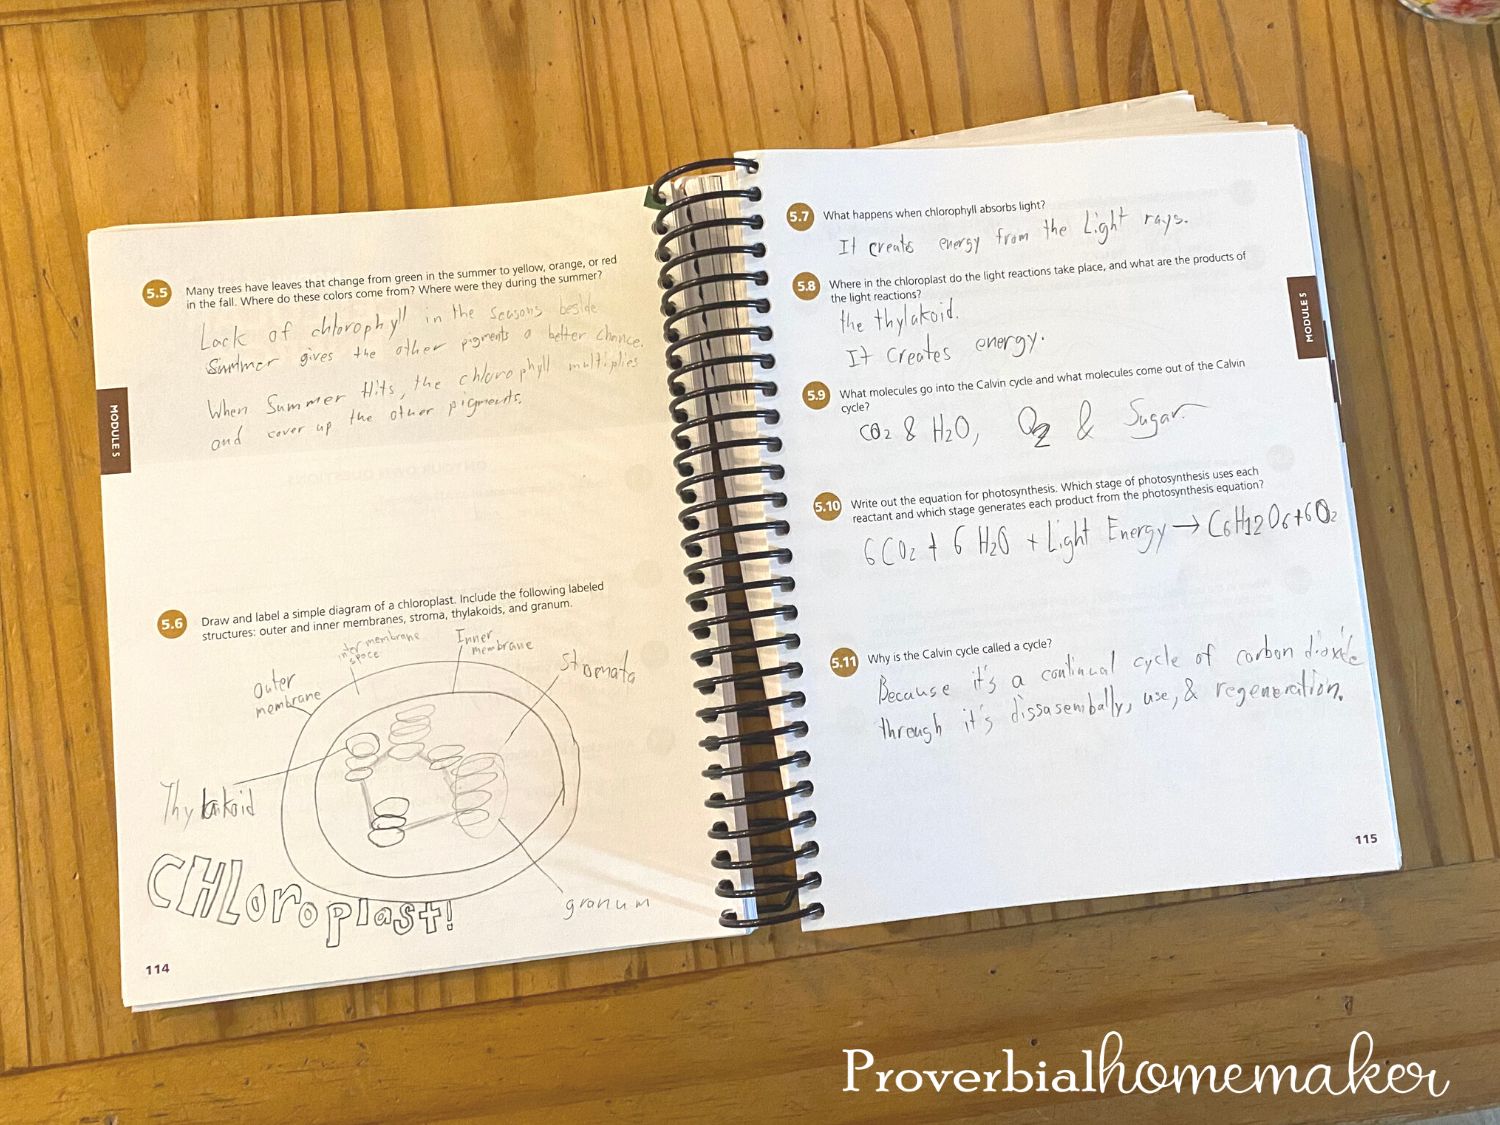 5.5 Many trees have leaves that change from green in the summer to yellow, orange, or red
in the fall. Where do these colors come from? Where were they during the summer?
Lack of chlorophyll in the seasons beside
Summer gives the other pigments a better chance.
When Summer Hits, the chlorophyll multiplies
and cover up the other pigments.
MODULE 5
5.6 Draw and label a simple diagram of a chloroplast. Include the following labeled
structures: outer and inner membranes, stroma, thylakoids, and granum.
inter membrane
space
Inner
membrane
outer
membrane
Stromata
Thylakoid
granum
CHLoroplast!
114
5.7 What happens when chlorophyll absorbs light?
It creats energy from the Light rays.
5.8 Where in the chloroplast do the light reactions take place, and what are the products of
the light reactions?
the thylakoid.
It creates energy.
MODULE 5
5.9 What molecules go into the Calvin cycle and what molecules come out of the Calvin
cycle?
CO2 & H2O, O2 & Sugar
5.10 Write out the equation for photosynthesis. Which stage of photosynthesis uses each
reactant and which stage generates each product from the photosynthesis equation?
6CO2 + 6 H2O + Light Energy → C6H12O6+6O2
5.11 Why is the Calvin cycle called a cycle?
Because it's a continual cycle of carbon dioxide
through it's dissasembally, use, & regeneration.
115
Proverbialhomemaker